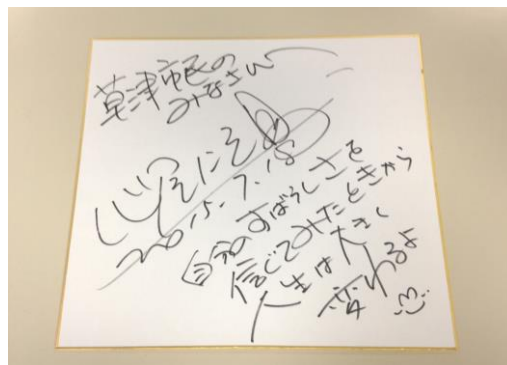 草津市民の
みなさん
2015.7.18
自分のすばらしさを
信じてみたときから
人生は大きく
変わるよ